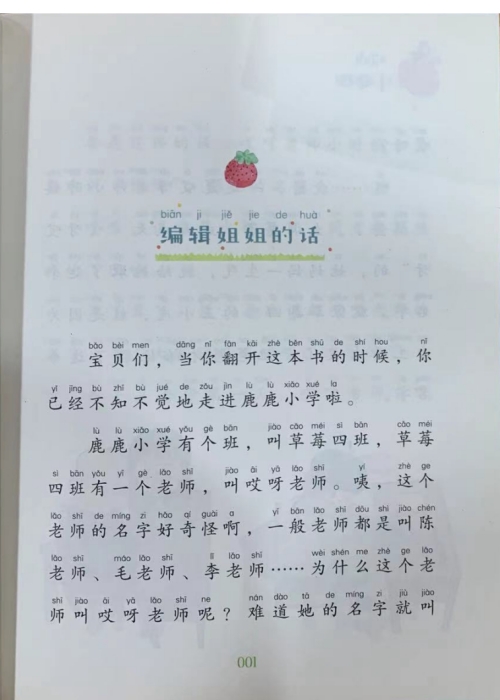 biān jí jiě jie de huà
编辑姐姐的话
bǎo bèi men dāng nǐ fān kāi zhè běn shū de shí hou nǐ
宝贝们，当你翻开这本书的时候，你
yǐ jīng bù zhī bù jué de zǒu jìn lù lù xiǎo xué la
已经不知不觉地走进鹿鹿小学啦。
lù lù xiǎo xué yǒu gè bān jiào cǎo méi sì bān cǎo méi
鹿鹿小学有个班，叫草莓四班，草莓
sì bān yǒu yí gè lǎo shī jiào āi yā lǎo shī yí zhè ge
四班有一个老师，叫哎呀老师。咦，这个
lǎo shī de míng zi hǎo qí guài a yì bān lǎo shī dōu shì jiào chén
老师的名字好奇怪啊，一般老师都是叫陈
lǎo shī máo lǎo shī lǐ lǎo shī wèi shén me zhè ge lǎo
老师、毛老师、李老师……为什么这个老
shī jiào āi yā lǎo shī ne nán dào tā de míng zi jiù jiào
师叫哎呀老师呢？难道她的名字就叫
001